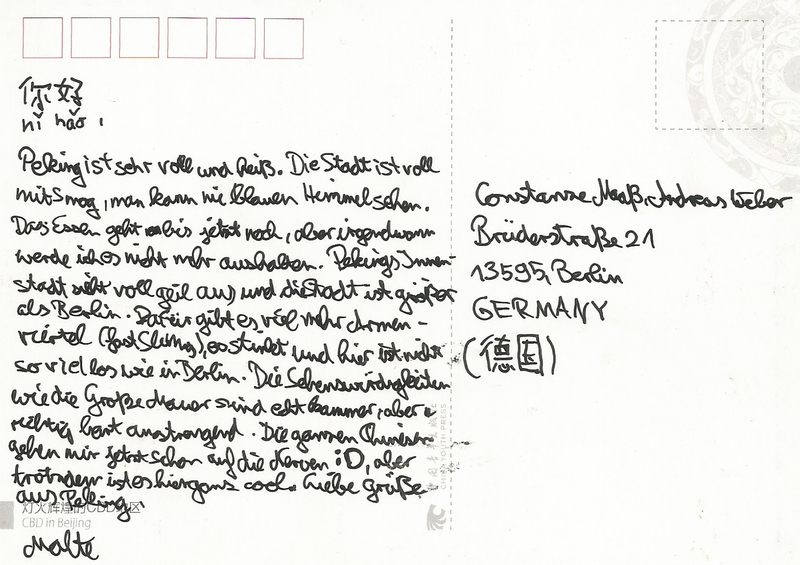 你好
nǐ hǎo,
Peking ist sehr voll und heiß. Die Stadt ist voll
mit Smog, man kann nie blauen Himmel sehen.
Das Essen geht bis jetzt noch, aber irgendwann
werde ich es nicht mehr aushalten. Pekings Innen-
stadt sieht voll geil aus und die Stadt ist größer
als Berlin. Dafür gibt es viel mehr Armen-
viertel (fast Slums), es stinkt und hier ist nicht
so viel los wie in Berlin. Die Sehenswürdigkeiten
wie die Große Mauer sind echt hammer, aber
richtig hart anstrengend. Die ganzen Chinesen
gehen mir jetzt schon auf die Nerven :D, aber
trotzdem ist es hier ganz cool. Liebe Grüße
aus Peking.
Malte
灯火辉煌的CBD地区
CBD in Beijing
中国青年出版社
CHINA YOUTH PRESS
Constanze Maaß, Andreas Weber
Brüderstraße 21
13595, Berlin
GERMANY
(德国)